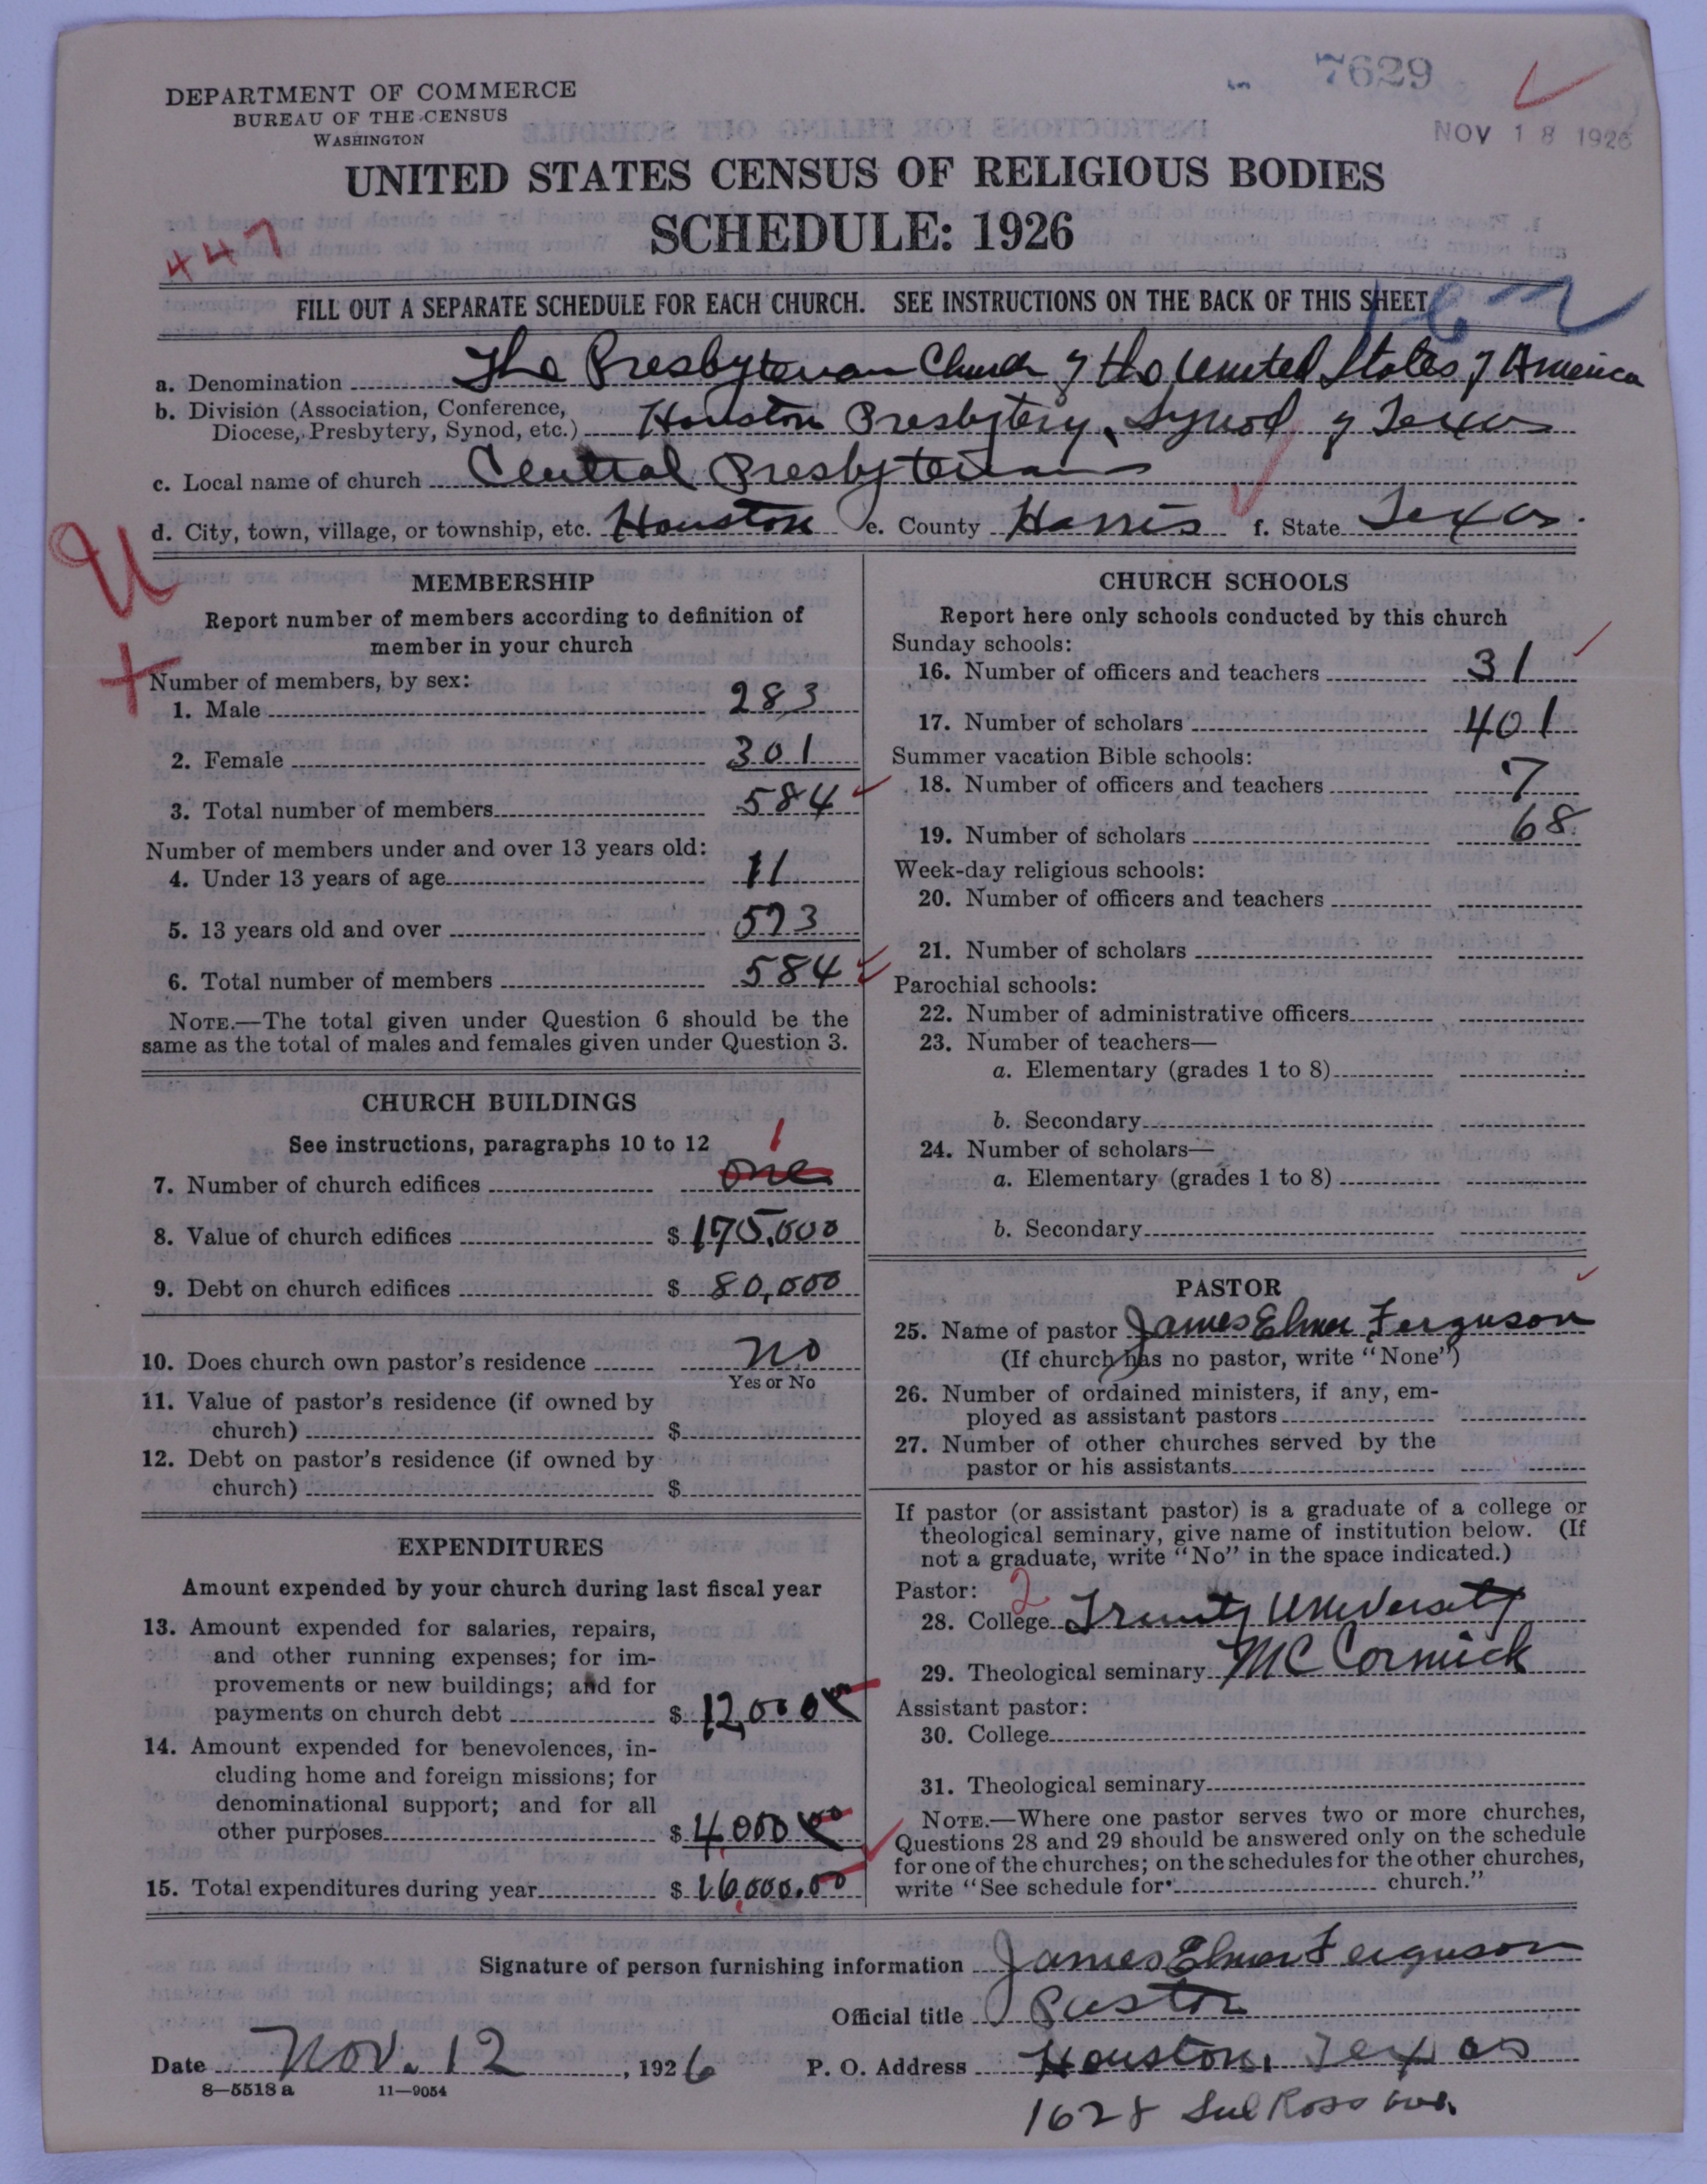 7629
NOV 18 1926
DEPARTMENT OF COMMERCE
BUREAU OF THE CENSUS
WASHINGTON
UNITED STATES CENSUS OF RELIGIOUS BODIES
SCHEDULE: 1926
447
FILL OUT A SEPARATE SCHEDULE FOR EACH CHURCH. SEE INSTRUCTIONS ON THE BACK OF THIS SHEET
a. Denomination The Presbyterian Church of the United States of America
b. Division (Association, Conference,
Diocese, Presbytery, Synod, etc.) Houston Presbytery, Synod of Texas
c. Local name of church Central Presbyterian
d. City, town, village, or township, etc. Houston e. County Harris f. State Texas.
U
MEMBERSHIP
Report number of members according to definition of
member in your church
Number of members, by sex:
1. Male 283
2. Female 301
3. Total number of members 584
Number of members under and over 13 years old:
4. Under 13 years of age 11
5. 13 years old and over 573
6. Total number of members 584
NOTE.—The total given under Question 6 should be the
same as the total of males and females given under Question 3.
CHURCH BUILDINGS
See instructions, paragraphs 10 to 12
1
7. Number of church edifices one
8. Value of church edifices $ 175,000
9. Debt on church edifices $ 80,000
10. Does church own pastor's residence No
Yes or No
11. Value of pastor's residence (if owned by
church) $
12. Debt on pastor's residence (if owned by
church) $
EXPENDITURES
Amount expended by your church during last fiscal year
13. Amount expended for salaries, repairs,
and other running expenses; for im-
provements or new buildings; and for
payments on church debt $ 12,000
14. Amount expended for benevolences, in-
cluding home and foreign missions; for
denominational support; and for all
other purposes $ 4000
15. Total expenditures during year $ 16,000.00
CHURCH SCHOOLS
Report here only schools conducted by this church
Sunday schools:
16. Number of officers and teachers 31
17. Number of scholars 401
Summer vacation Bible schools:
18. Number of officers and teachers 7
19. Number of scholars 68
Week-day religious schools:
20. Number of officers and teachers
21. Number of scholars
Parochial schools:
22. Number of administrative officers
23. Number of teachers—
a. Elementary (grades 1 to 8)
b. Secondary
24. Number of scholars—
a. Elementary (grades 1 to 8)
b. Secondary
PASTOR
25. Name of pastor James Elmer Ferguson
(If church has no pastor, write "None")
26. Number of ordained ministers, if any, em-
ployed as assistant pastors
27. Number of other churches served by the
pastor or his assistants
If pastor (or assistant pastor) is a graduate of a college or
theological seminary, give name of institution below. (If
not a graduate, write "No" in the space indicated.)
Pastor: 2
28. College Trinity University
29. Theological seminary McCormick
Assistant pastor:
30. College
31. Theological seminary
NOTE.—Where one pastor serves two or more churches,
Questions 28 and 29 should be answered only on the schedule
for one of the churches; on the schedules for the other churches,
write "See schedule for church."
Signature of person furnishing information James Elmer Ferguson
Official title Pastor
Date Nov. 12, 1926 P. O. Address Houston, Texas
8—5518 a 11—9054
1628 Sul Ross Ave.